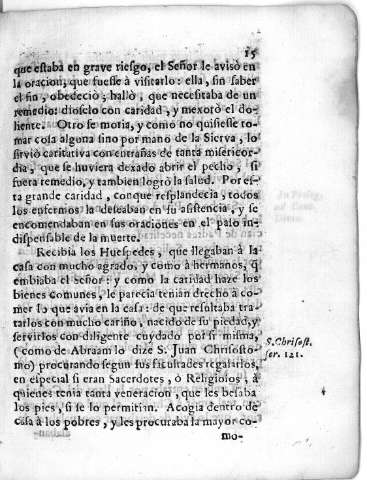 15
que estaba en grave riesgo, el Señor le avisò en
la oracion, que fuesse à visitarlo: ella, sin saber
el fin, obedeciò; hallò, que necesitaba de un
remedio: dioselo con caridad, y mexorò el do-
liente. Otro se moria, y como no quisiesse to-
mar cosa alguna sino por mano de la Sierva, lo
sirviò caritativa con entrañas de tanta misericor-
dia, que se huviera dexado abrir el pecho, si
fuera remedio, y tambien logrò la salud. Por es-
ta grande caridad, con que resplandecia, todos
los enfermos la deseaban en su asistencia, y se
encomendaban en sus oraciones en el paso in-
dispensable de la muerte.
Recibia los Huespedes, que llegaban à la
casa con mucho agrado, y como à hermanos, q
embiaba el Señor: y como la caridad haze los
bienes comunes, le parecia tenian drecho à co-
mer lo que avia en la casa: de que resultaba tra-
tarlos con mucho cariño, nacido de su piedad, y
servirlos con diligente cuydado por si misma,
(como de Abraam lo dize S. Juan Chrisosto-
mo) procurando segun sus facultades regalarlos,
en especial si eran Sacerdotes, ò Religiosos, à
quienes tenia tanta veneracion, que les besaba
los pies, si se lo permitian. Acogia dentro de
casa à los pobres, y les procuraba la mayor co-
mo-
S. Chrisost.
ser. 121.